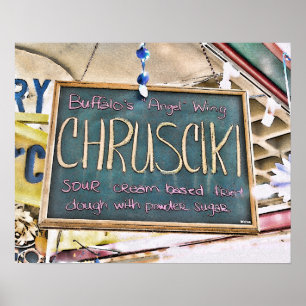 RY
Buffalo's "Angel" Wing
CHRUSCIKI
SOUR cream based fried
dough with powder sugar